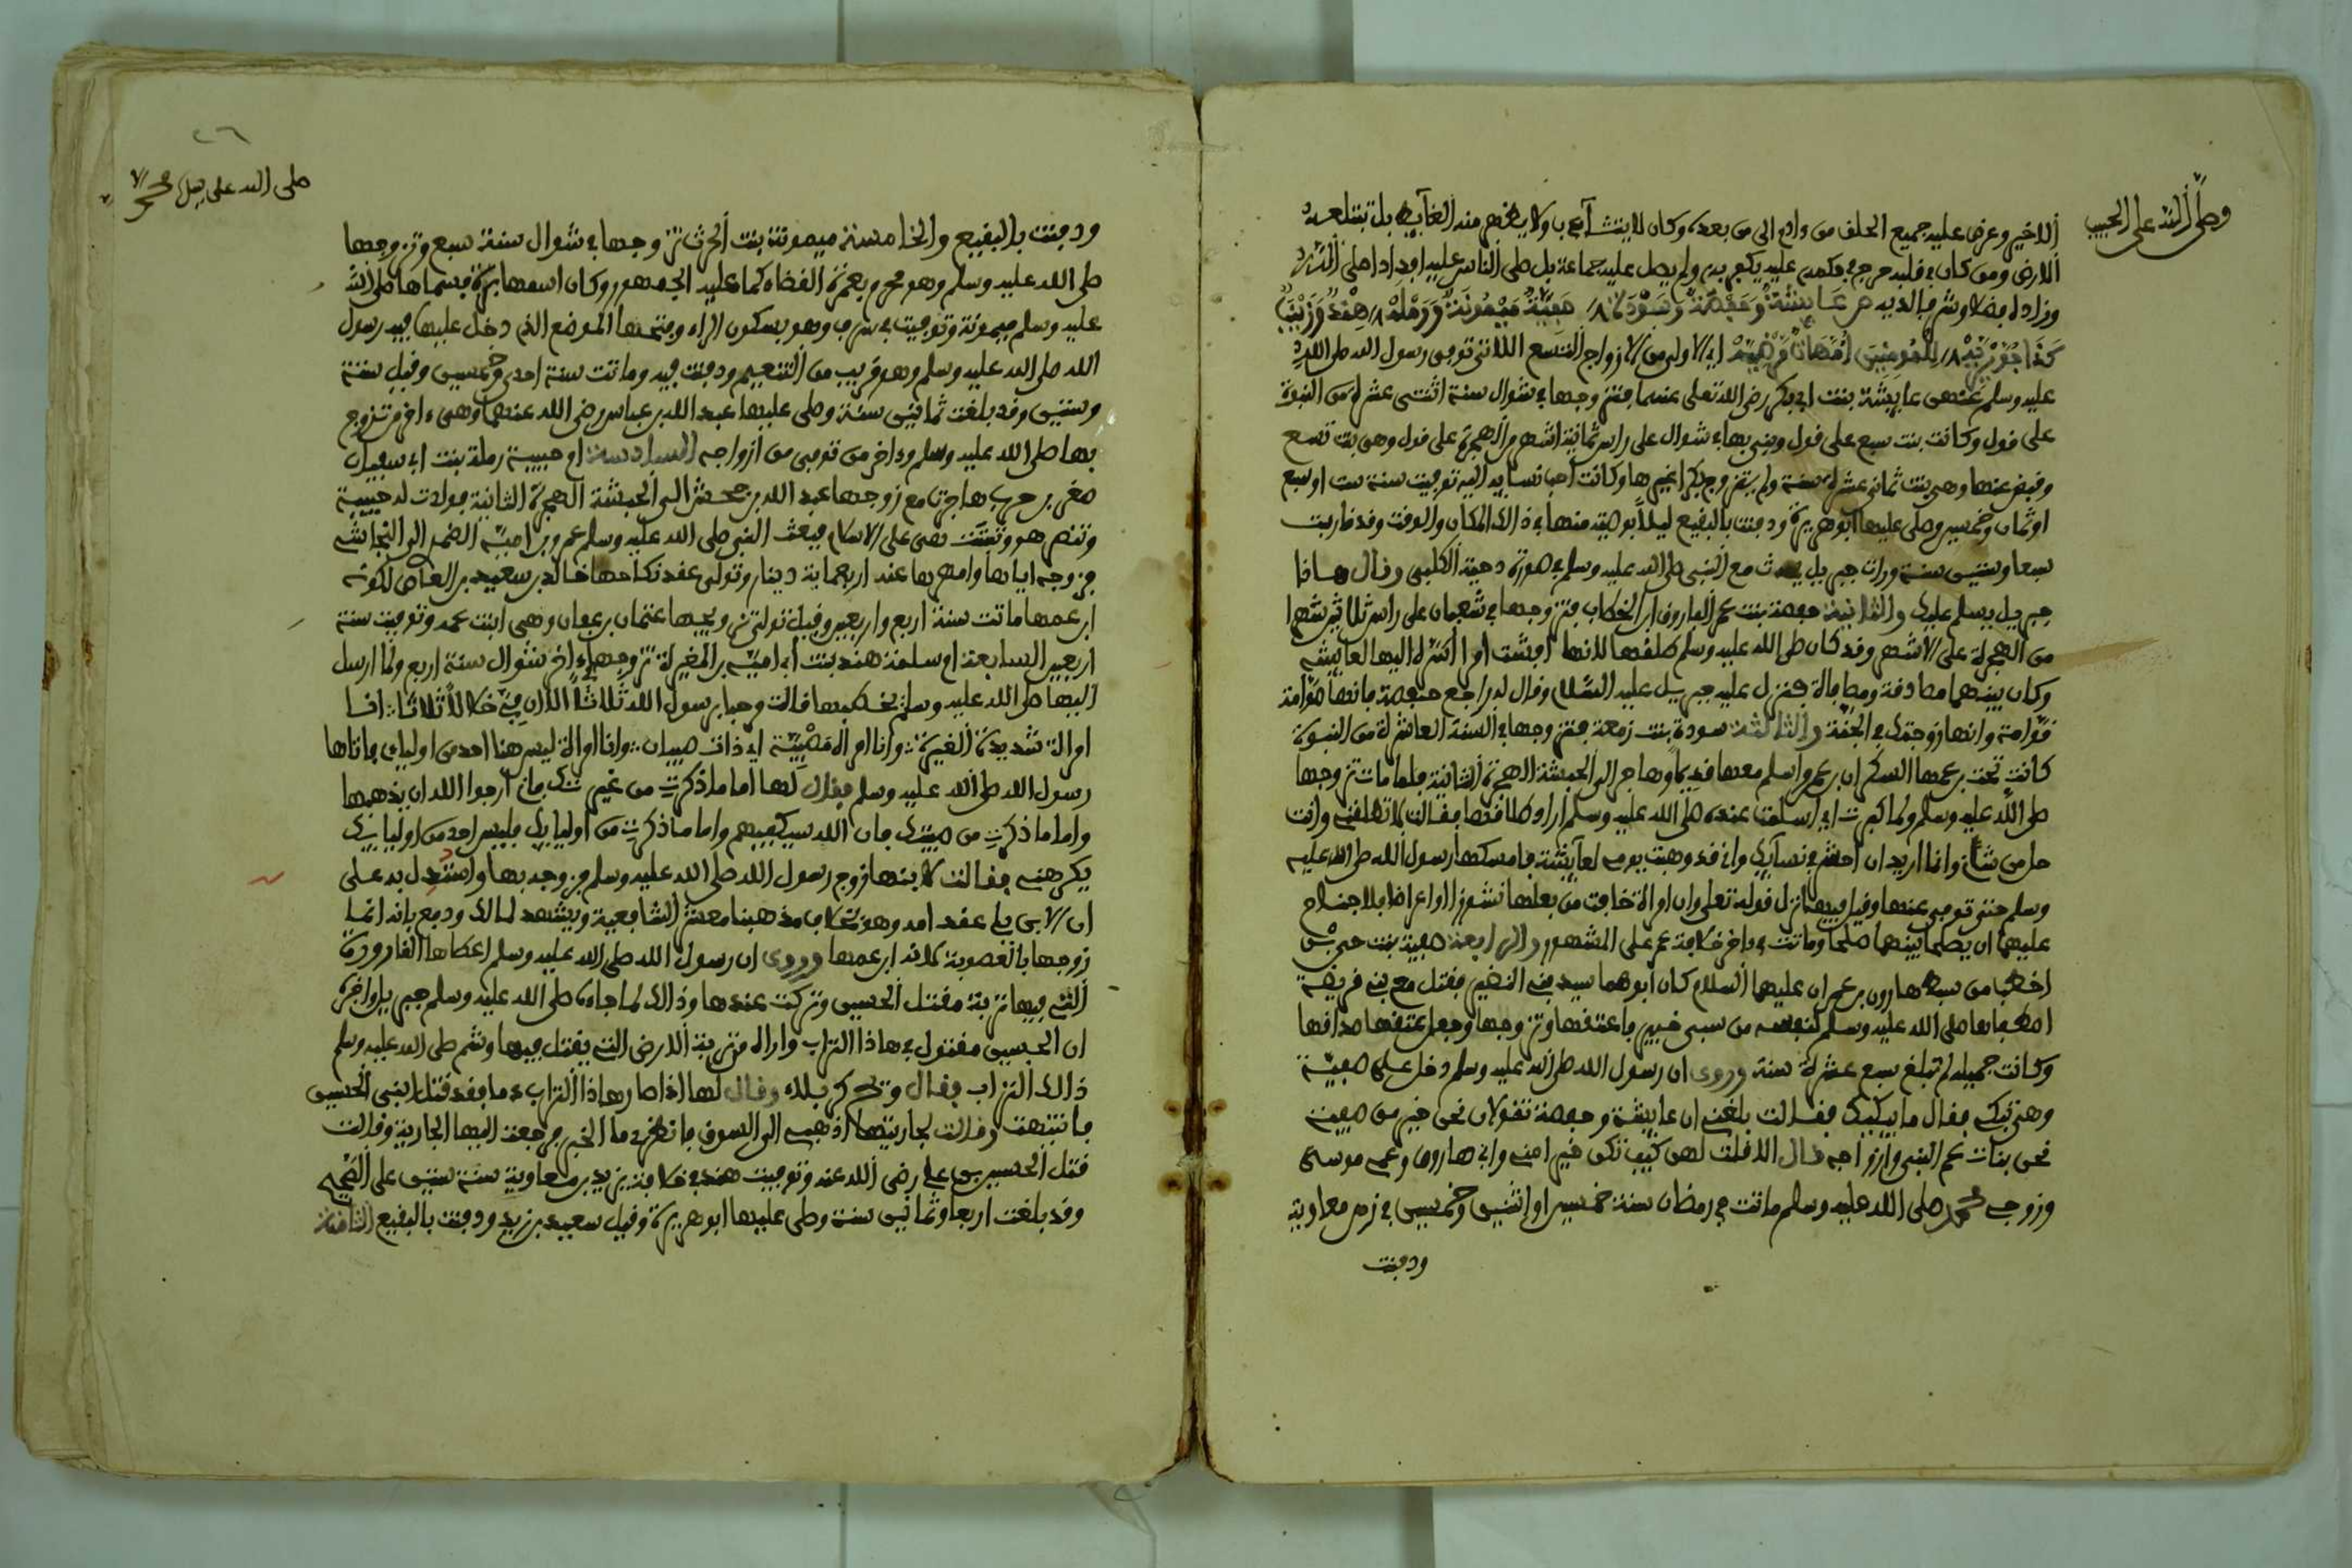 وصلى الله على الحبيب
الاخير وعرض عليه جميع الخلف من ءادم الى من بعده وكان لا يتثاءب ولا يظهر منه الغايط بل تبتلعه
الارض ومن كان في قلبه حرج في حكمه عليه يكفر به ولم يصل عليه جماعة بل صلى الناس عليه افرادا صلى الله
وزاده فضلا وشرفا لديه عايشة وحفصة وسودة صفية ميمونة ورملة هند وزينب
كذا جويرية للمومنين امهات مرضية اي الاولى من الازواج التسع اللاتي توفي رسول الله صلى الله
عليه وسلم عنهن عايشة بنت ابي بكر رضي الله تعلى عنهما فتزوجها في شوال سنة اثنتي عشرة من النبوة
على قول وكانت بنت سبع على قول وبنى بها في شوال على راس ثمانية اشهر من الهجرة على قول وهي بنت تسع
وقبض عنها وهي بنت ثماني عشرة سنة ولم يتزوج بكرا غيرها وكانت احب نسايه اليه توفيت سنة ست او سبع
او ثمان وخمسين وصلى عليها ابو هريرة ودفنت بالبقيع ليلا بوصية منها في ذالك المكان والوقت وقد قاربت
سبعا وستين سنة ورات جبريل يحدث مع النبي صلى الله عليه وسلم في صورة دحية الكلبي وقال هاذا
جبريل يسلم عليك والثانية حفصة بنت عمر الفاروق ابن الخطاب فتزوجها في شعبان على راس ثلاثين شهرا
من الهجرة على الاشهر وقد كان صلى الله عليه وسلم طلقها لانها افشت امرا اسره اليها لعايشة
وكان بينهما مصادقة ومصافاة فنزل عليه جبريل عليه السلام وقال له راجع حفصة فانها صوامة
قوامة وانها زوجتك في الجنة والثالثة سودة بنت زمعة فتزوجها في السنة العاشرة من النبوة
كانت تحت بن عمها السكران بن عمرو اسلم معها قديما وهاجر الى الحبشة الهجرة الثانية فلما مات تزوجها
صلى الله عليه وسلم ولما كبرت اي اسنت عنده صلى الله عليه وسلم اراد طلاقها فقالت لا تطلقني وانت
حل من شاني وانما اريد ان احشر في نسايك واني قد وهبت يومي لعايشة فامسكها رسول الله صلى الله عليه
وسلم حتى توفي عنها وقيل فيها نزل قوله تعلى وان امراة خافت من بعلها نشوزا او اعراضا فلا جناح
عليهما ان يصلحا بينهما صلحا وماتت في ءاخر خلافة عمر على المشهور والرابعة صفية بنت حيي بن
اخطب من سبط هارون بن عمران عليهما السلام كان ابوهما سيد بني النضير فقتل مع بني قريضة
اصطفاها صلى الله عليه وسلم لنفسه من سبي خيبر فاعتقها وتزوجها وجعل عتقها صداقها
وكانت جميلة لم تبلغ سبع عشرة سنة وروى ان رسول الله صلى الله عليه وسلم دخل على صفية
وهي تبك فقال ما يبكيك فقالت بلغني ان عايشة وحفصة تقولان نحن خير من صفية
نحن بنات عم النبي وازواجه قال الا قلت لهن كيف تكن خيرا مني واني هارون وعمي موسى
وزوجي محمد صلى الله عليه وسلم ماتت في رمضان سنة خمسين او اثنين وخمسين في زمن معاوية
ودفنت
٤٦
صلى الله على محمد
ودفنت بالبقيع والخامسة ميمونة بنت الحرث تزوجها في شوال سنة سبع وتزوجها
صلى الله عليه وسلم وهو محرم بعمرة القضاء كما عليه الجمهور وكان اسمها برة فسماها صلى الله
عليه وسلم ميمونة وتوفيت في سرف وهو بسكون الراء وفتحها الموضع الذي دخل عليها فيه رسول
الله صلى الله عليه وسلم وهو قريب من التنعيم ودفنت فيه وماتت سنة احدى وخمسين وقيل سنة
وستين وقد بلغت ثمانين سنة وصلى عليها عبد الله بن عباس رضي الله عنهما وهي ءاخر من تزوج
بها صلى الله عليه وسلم وءاخر من توفي من ازواجه السادسة ام حبيبة رملة بنت ابي سفيان
صخر بن حرب هاجرت مع زوجها عبد الله بن جحش الى الحبشة الهجرة الثانية فولدت له حبيبة
وتنصر هو وثبتت هي على الاسلام فبعث النبي صلى الله عليه وسلم عمرو بن امية الضمري الى النجاشي
فزوجه اياها وامهرها عنه اربعماية دينار وتولى عقد نكاحها خالد بن سعيد بن العاص لكونه
ابن عمها ماتت سنة اربع واربعين وقيل تولى تزويجها عثمان بن عفان وهي ابنت عمه وتوفيت سنة
اربعين السابعة ام سلمة هند بنت ابي امية بن المغيرة تزوجها في ءاخر شوال سنة اربع ولما ارسل
اليها صلى الله عليه وسلم يخطبها قالت مرحبا برسول الله ثلاثا الا ان في خلالا ثلاثا انا
امراة شديدة الغيرة وانا امراة مصبية اي ذات صبيان وانا امراة ليس هنا احد من اولياي فاتاها
رسول الله صلى الله عليه وسلم فقال لها اما ما ذكرت من غيرتك فاني ارجوا الله ان يذهبها
واما ما ذكرت من صبيتك فان الله سيكفيهم واما ما ذكرت من اوليايك فليس احد من اوليايك
يكرهني فقالت لابنها زوج رسول الله صلى الله عليه وسلم فزوجه بها واستدل به على
ان الابن يلي عقد امه وهو خلاف مذهبنا معشر الشافعية ويشهد لمالك ودفع بانه انما
زوجها بالعصوبة لانه ابن عمها وروى ان رسول الله صلى الله عليه وسلم اعطاها القارورة
التي فيها تربة مقتل الحسين وتركت عندها وذالك لما جاءه صلى الله عليه وسلم جبريل واخبره
ان الحسين مقتول في هاذا التراب واراه من تربة الارض التي يقتل فيها وشم صلى الله عليه وسلم
ذالك التراب فقال ريح كربلاء وقال لها اذا صار هاذا التراب دما فقد قتل ابني الحسين
فانتبهت وقالت لجاريتها اذهبي الى السوق فانظري ما الخبر فرجعت اليها الجارية وقالت
قتل الحسين بن علي رضي الله عنه وتوفيت هند في خلافة يزيد بن معاوية سنة ستين على الصحيح
وقد بلغت اربعا وثمانين سنة وصلى عليها ابو هريرة وقيل سعيد بن زيد ودفنت بالبقيع الثامنة